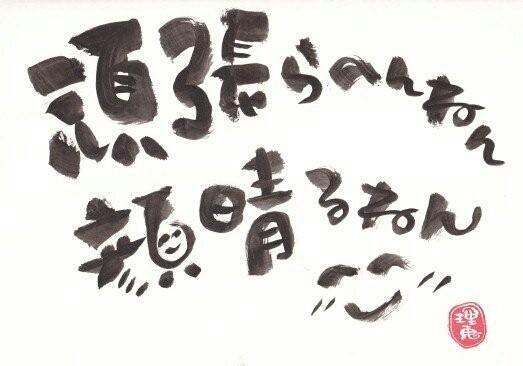 頑張らへんねん
顔晴るねん
理恵